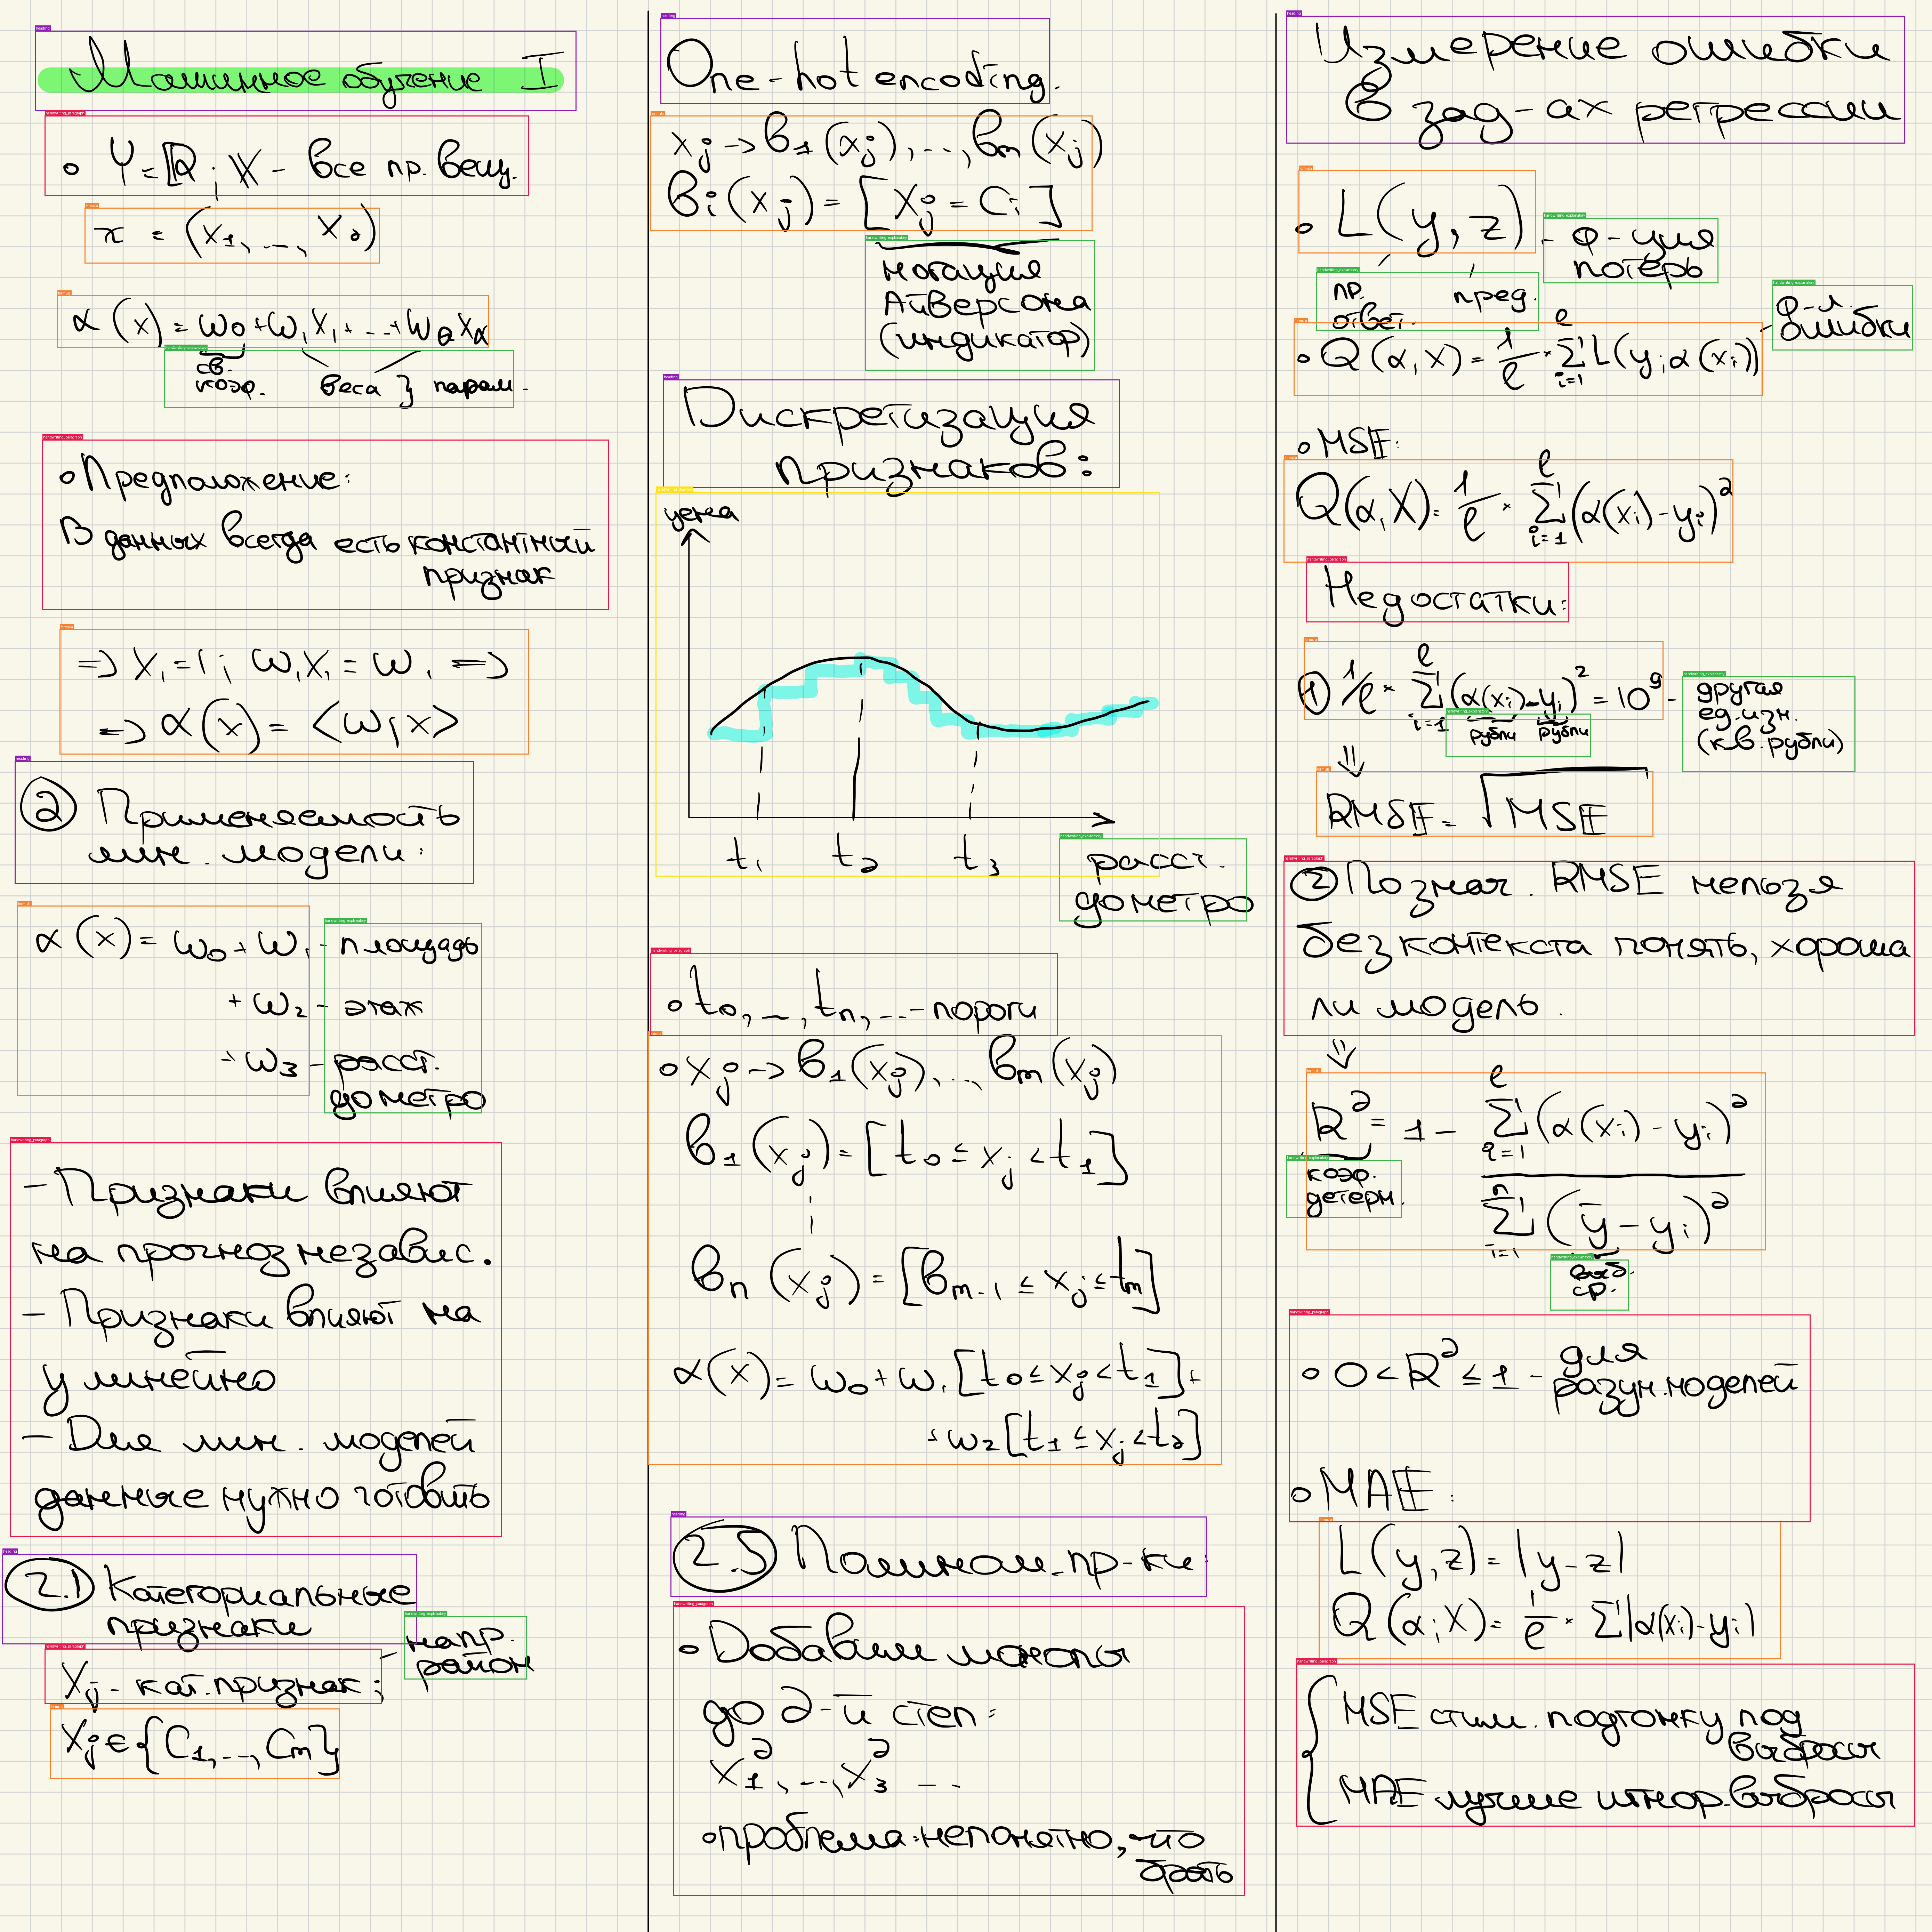 Машинное обучение I
• Y = ℝ; X - все пр. вещ.
x = (x₁, ..., x_d)
α(x) = w₀ + w₁x₁ + ... + w_d x_d
св. коэф.
веса } парам.
• Предположение:
В данных всегда есть константный
признак
=> x₁ = 1; w₁x₁ = w₁ =>
=> α(x) = <w, x>
② Применяемость
лин. модели:
α(x) = w₀ + w₁ - площадь
+ w₂ - этаж
+ w₃ - расст.
до метро
- Признаки влияют
на прогноз независ.
- Признаки влияют на
y линейно
- Для лин. моделей
данные нужно готовить
2.1 Категориальные
признаки
x_j - кат. признак; - напр.
район
x_j ∈ {C₁, ..., C_m}
One-hot encoding.
x_j -> b₁(x_j), ..., b_m(x_j)
b_i(x_j) = [x_j = C_i]
нотация
Айверсона
(индикатор)
Дискретизация
признаков:
цена
t₁ t₂ t₃
расст.
до метро
• t₀, ..., t_n, ... - пороги
• x_j -> b₁(x_j), ..., b_m(x_j)
b₁(x_j) = [t₀ ≤ x_j < t₁]
⋮
b_n(x_j) = [b_{m-1} ≤ x_j ≤ t_m]
α(x) = w₀ + w₁[t₀ ≤ x_j < t₁] +
+ w₂[t₁ ≤ x_j < t₂]
2.5 Полином. пр-ки:
• Добавим
до 2-й степ:
x₁², ..., x₃² ...
• проблема: непонятно, что
брать
Измерение ошибки
в зад-ах регрессии
• L(y, z) - ф-ция
потерь
пр. ответ.
пред.
• Q(α, X) = 1/ℓ * Σ_{i=1}^ℓ L(y; α(x_i)) - ф-л.
ошибки
• MSE:
Q(α, X) = 1/ℓ * Σ_{i=1}^ℓ (α(x_i) - y_i)²
Недостатки:
① 1/ℓ * Σ_{i=1}^ℓ (α(x_i) - y_i)² = 10⁹ - другая
ед. изм.
(кв. рубли)
рубли рубли
⇓
RMSE = √MSE
② По знач. RMSE нельзя
без контекста понять, хороша
ли модель.
⇓
R² = 1 - Σ_{i=1}^ℓ (α(x_i) - y_i)² / Σ_{i=1}^n (ȳ - y_i)²
коэф.
детерм.
выб.
ср.
• 0 < R² ≤ 1 - для
разум. моделей
• MAE:
L(y, z) = |y - z|
Q(α; X) = 1/ℓ * Σ|α(x_i) - y_i|
{ MSE стим. подгонку под
выбросы
MAE лучше игнор. выбросы